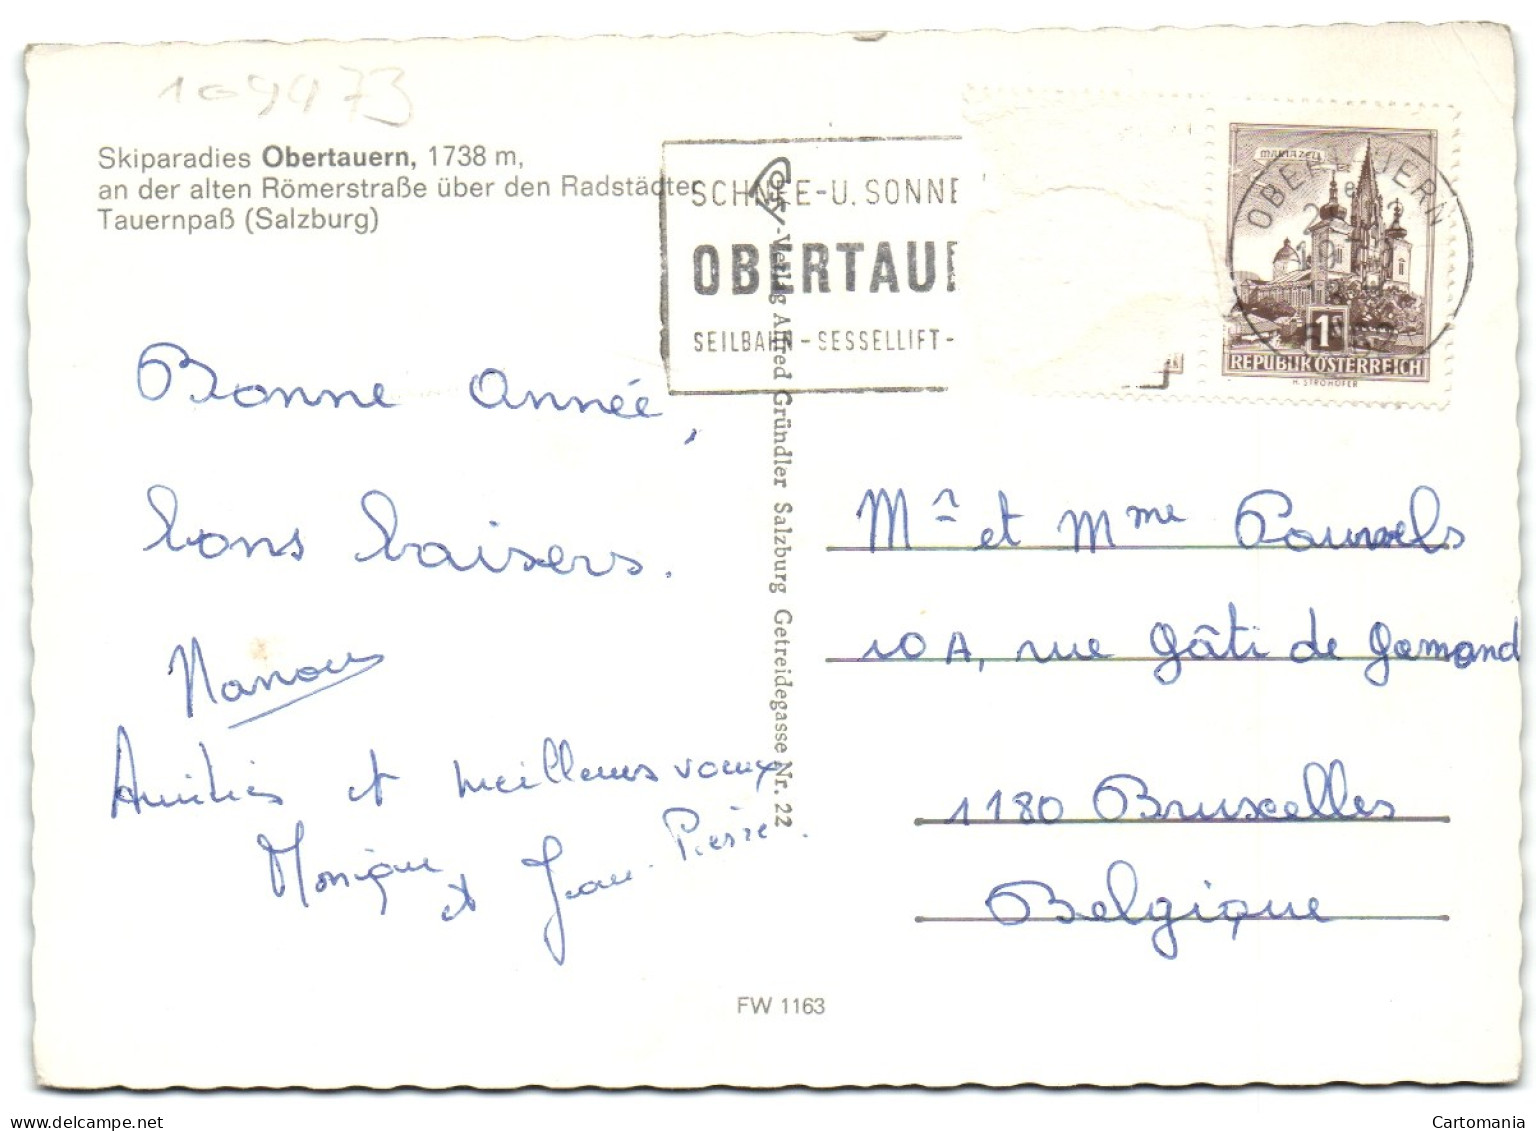 109973
Skiparadies Obertauern, 1738 m,
an der alten Römerstraße über den Radstädter
Tauernpaß (Salzburg)
SCHNEE-U. SONNE
OBERTAUE
SEILBAHN - SESSELLIFT -
MARIAZELL
OBERTAUERN
1
REPUBLIK ÖSTERREICH
H. STROHOFER
Verlag Alfred Gründler Salzburg Getreidegasse Nr. 22
Bonne année,
bons baisers.
Manou
Amitiés et meilleurs voeux
Monique et Jean-Pierre.
Mr et Mme Pauwels
10A, rue Gâti de Gamond
1180 Bruxelles
Belgique
FW 1163
www.delcampe.net
Cartomania